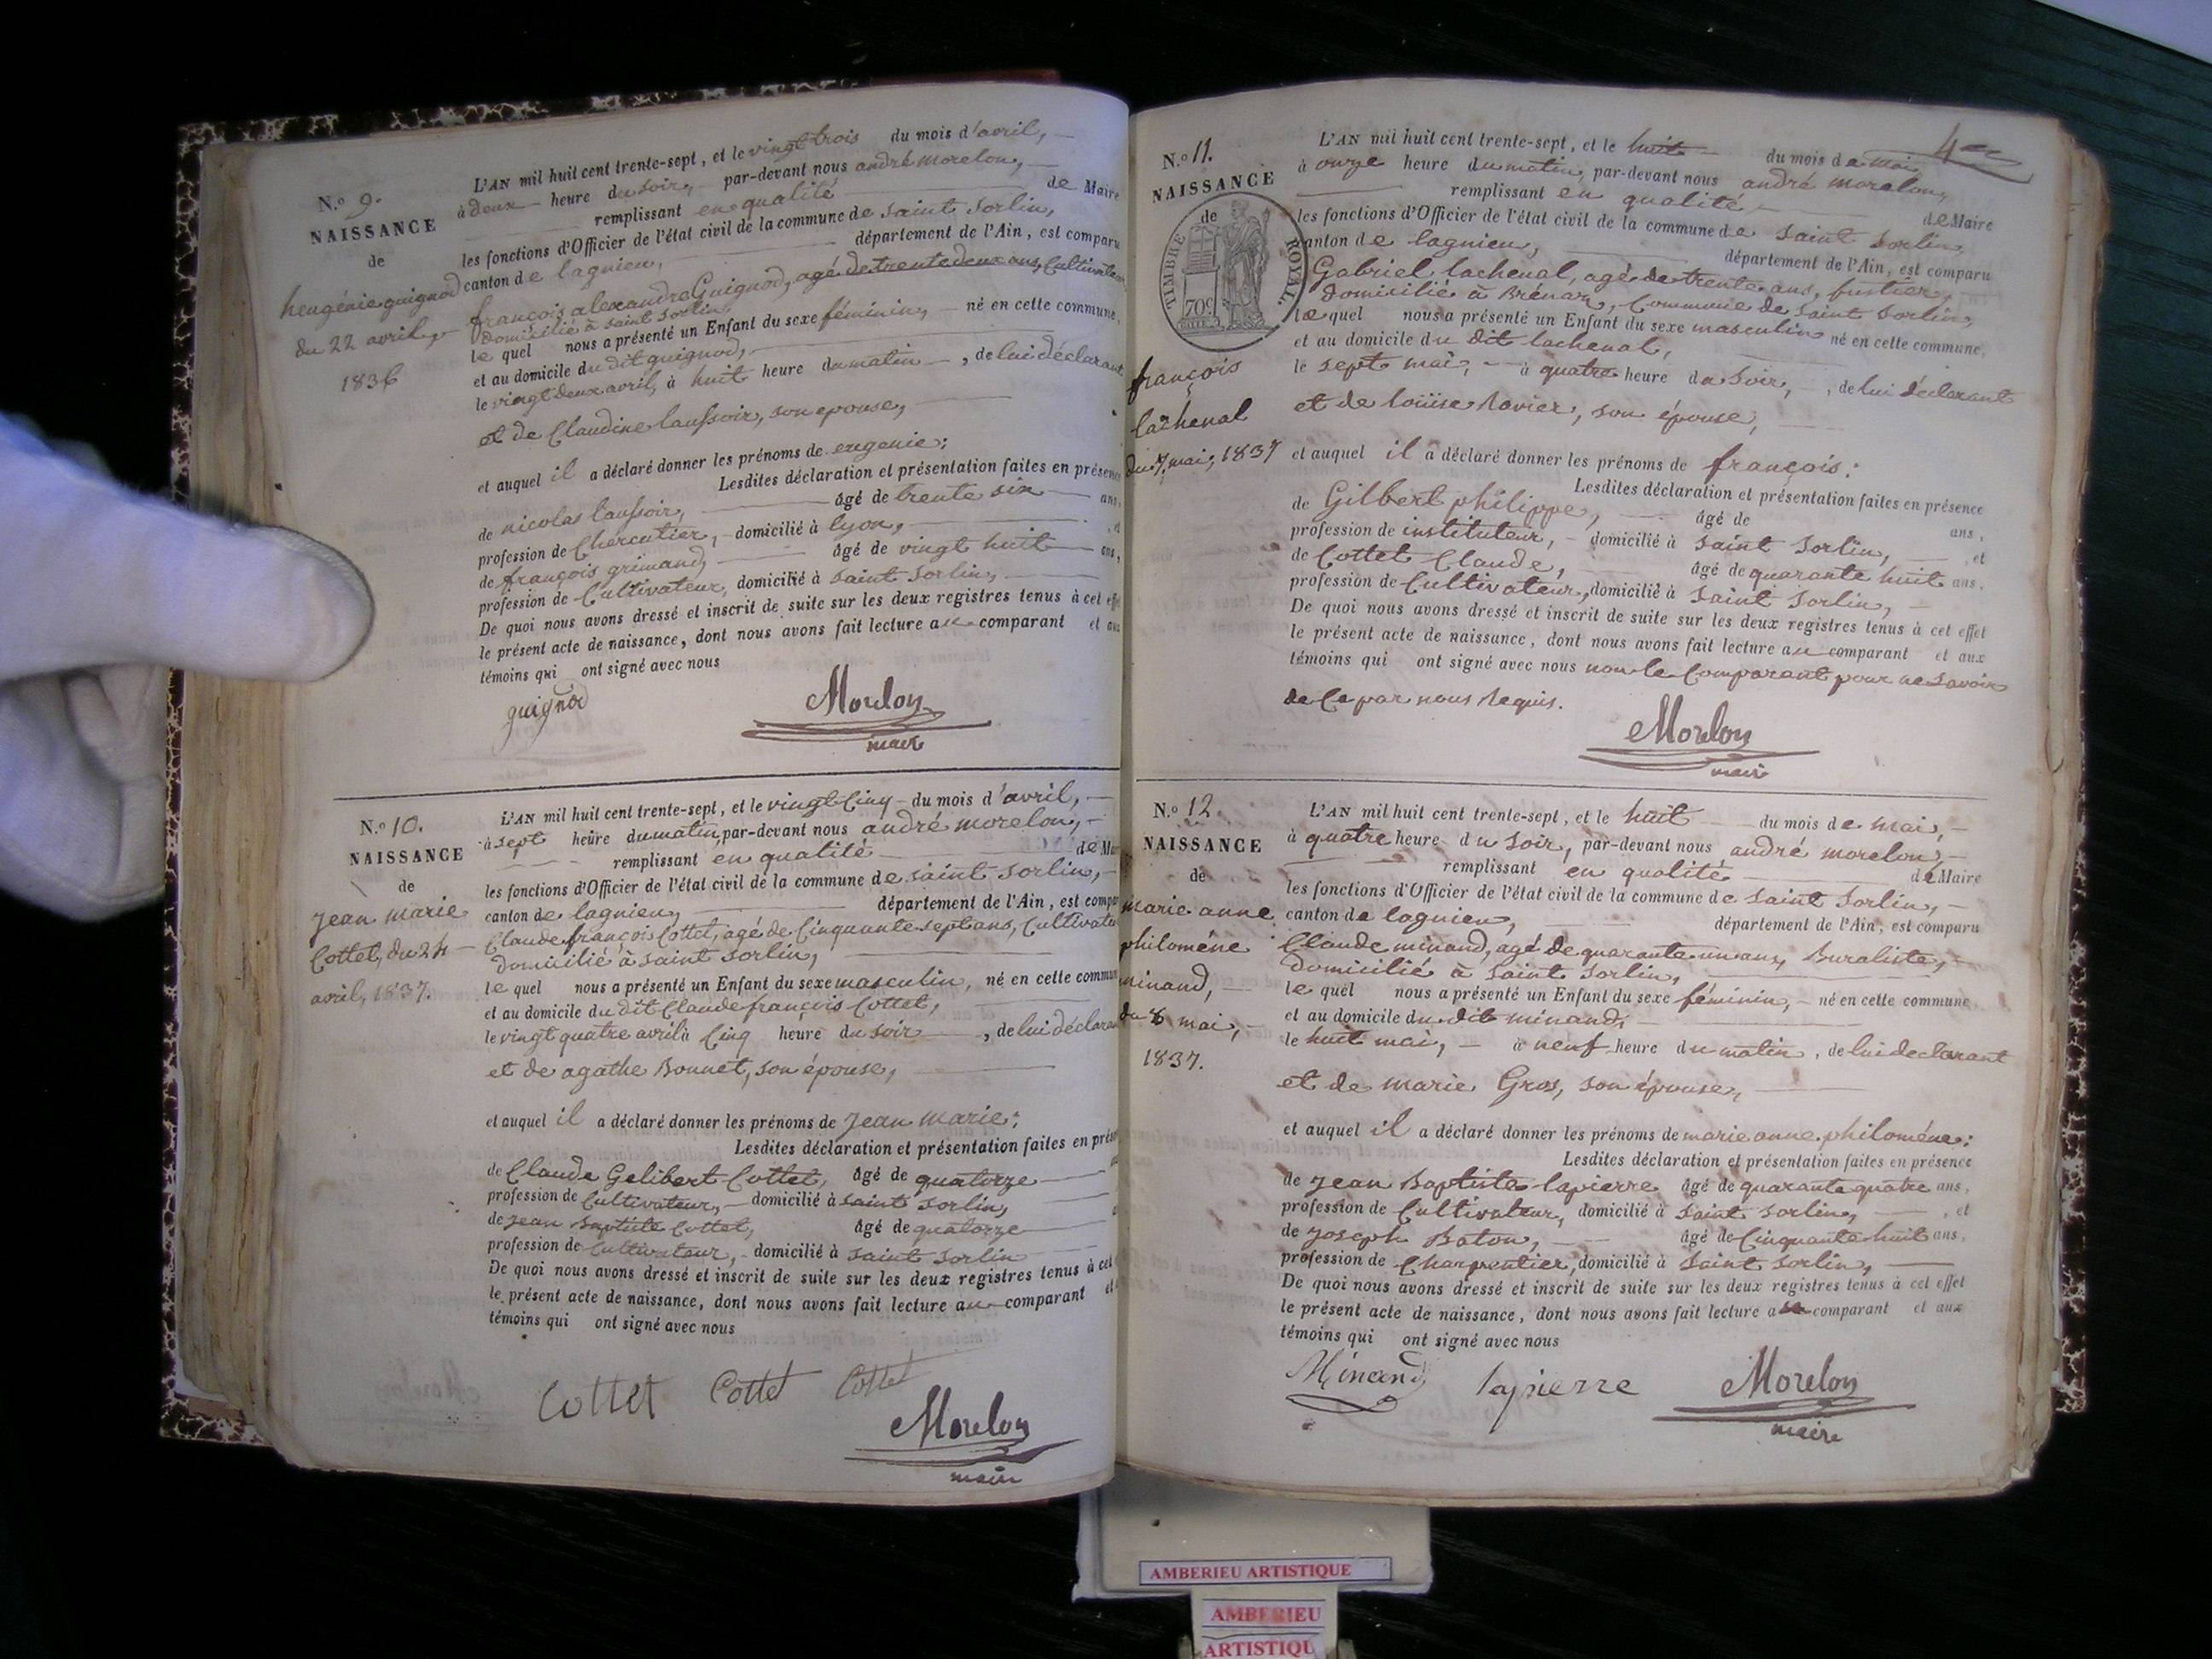 N.º 9.
NAISSANCE
de
heugénie guignod
du 22 avril,
1836
L'AN mil huit cent trente-sept, et le vingt trois du mois d'avril,
à deux heure du soir, par-devant nous andré morelon,
remplissant en qualité de Maire
les fonctions d'Officier de l'état civil de la commune de saint Sorlin,
canton de lagnieu, département de l'Ain, est comparu
françois alexandre Guignod, agé de trente deux ans, Cultivateur
domicilié à saint Sorlin,
le quel nous a présenté un Enfant du sexe féminin, né en cette commune,
et au domicile du dit guignod,
le vingt deux avril, à huit heure du matin, de lui déclarant
et de Claudine laussoir, son epouse,
et auquel il a déclaré donner les prénoms de eugenie;
Lesdites déclaration et présentation faites en présence
de nicolas laussoir, âgé de trente six ans,
profession de Chercutier, domicilié à lyon, et
de françois grimand, âgé de vingt huit ans,
profession de Cultivateur, domicilié à saint Sorlin,
De quoi nous avons dressé et inscrit de suite sur les deux registres tenus à cet effet
le présent acte de naissance, dont nous avons fait lecture au comparant et aux
témoins qui ont signé avec nous
guignod Morelon
maire
N.º 10.
NAISSANCE
de
Jean marie
Cottet, du 24
avril, 1837.
L'AN mil huit cent trente-sept, et le vingt Cinq du mois d'avril,
à sept heure du matin, par-devant nous andré morelon,
remplissant en qualité de Mai
les fonctions d'Officier de l'état civil de la commune de saint Sorlin,
canton de lagnieu, département de l'Ain, est compa
Claude françois Cottet, agé de Cinquante sept ans, Cultivate
domicilié à saint Sorlin,
le quel nous a présenté un Enfant du sexe masculin, né en cette commun
et au domicile du dit Claude françois Cottet,
le vingt quatre avril à Cinq heure du soir, de lui déclara
et de agathe Bonnet, son épouse,
et auquel il a déclaré donner les prénoms de Jean marie;
Lesdites déclaration et présentation faites en prése
de Claude Gelibert Cottet, âgé de quatorze
profession de Cultivateur, domicilié à saint Sorlin,
de Jean Baptiste Cottet, âgé de quatorze
profession de Cultivateur, domicilié à saint Sorlin
De quoi nous avons dressé et inscrit de suite sur les deux registres tenus à cet
le présent acte de naissance, dont nous avons fait lecture au comparant et
témoins qui ont signé avec nous
Cottet Cottet Cottet
Morelon
maire
4
N.º 11.
NAISSANCE
de
TIMBRE ROYAL
70 c
françois
lachenal
du 7 mai, 1837
L'AN mil huit cent trente-sept, et le huit du mois de mai,
à onze heure du matin, par-devant nous andré morelon,
remplissant en qualité de Maire
les fonctions d'Officier de l'état civil de la commune de saint Sorlin,
canton de lagnieu, département de l'Ain, est comparu
Gabriel lachenal, agé de trente ans, fustier,
domicilié à Brénaz, Commune de saint Sorlin,
le quel nous a présenté un Enfant du sexe masculin né en cette commune,
et au domicile du dit lachenal,
le sept mai, à quatre heure du Soir, de lui déclarant
et de loüise Ravier, son épouse,
et auquel il a déclaré donner les prénoms de françois;
Lesdites déclaration et présentation faites en présence
de Gilbert philippe, âgé de ans,
profession de instituteur, domicilié à saint Sorlin, et
de Cottet Claude, âgé de quarante huit ans,
profession de Cultivateur, domicilié à saint Sorlin,
De quoi nous avons dressé et inscrit de suite sur les deux registres tenus à cet effet
le présent acte de naissance, dont nous avons fait lecture au comparant et aux
témoins qui ont signé avec nous non le Comparant pour ne Savoir
de Ce par nous Requis.
Morelon
maire
N.º 12.
NAISSANCE
de
marie anne
philoméne
minand,
du 8 mai,
1837.
L'AN mil huit cent trente-sept, et le huit du mois de mai,
à quatre heure du Soir, par-devant nous andré morelon,
remplissant en qualité de Maire
les fonctions d'Officier de l'état civil de la commune de saint Sorlin,
canton de lagnieu, département de l'Ain, est comparu
Claude minand, agé de quarante un ans, Buraliste,
domicilié à saint Sorlin,
le quel nous a présenté un Enfant du sexe féminin, né en cette commune
et au domicile du dit minand,
le huit mai, à neuf heure du matin, de lui declarant
et de marie Gros, son épouse,
et auquel il a déclaré donner les prénoms de marie anne philoméne;
Lesdites déclaration et présentation faites en présence
de Jean Baptiste lapierre âgé de quarante quatre ans,
profession de Cultivateur, domicilié à saint Sorlin, et
de Joseph Baton, âgé de Cinquante huit ans,
profession de Charpentier, domicilié à saint Sorlin,
De quoi nous avons dressé et inscrit de suite sur les deux registres tenus à cet effet
le présent acte de naissance, dont nous avons fait lecture au comparant et aux
témoins qui ont signé avec nous
Minand lapierre Morelon
maire
AMBERIEU ARTISTIQUE
AMBERIEU
ARTISTIQU